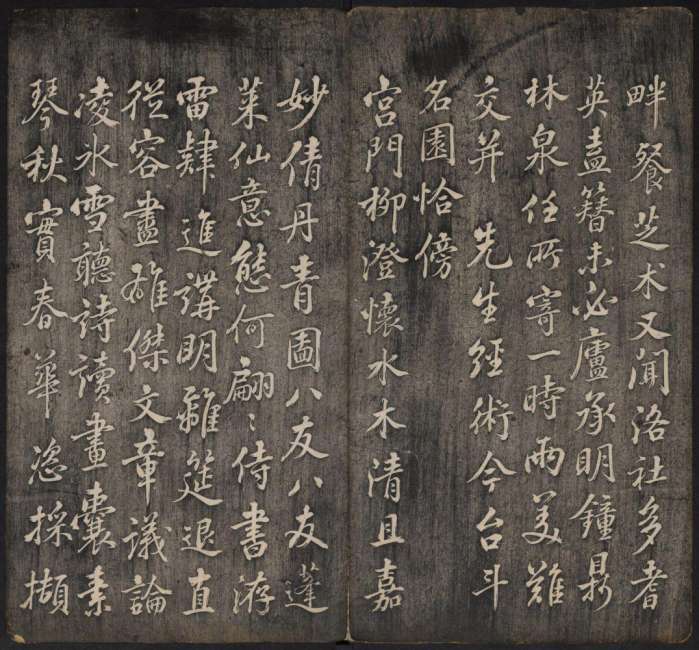 畔餐芝术又聞洛社多耆
英盍簪未必廬承明鐘鼎
林泉任所寄一時兩美難
交并 先生經術今台斗
名園恰傍
宮門柳澄懷水木清且嘉
妙倩丹青圖八友八友蓬
萊仙意態何翩〻侍書洊
雷肆進講明離筵退直
從容盡雄傑文章議論
凌冰雪聽詩讀畫囊素
琴秋實春華恣採擷